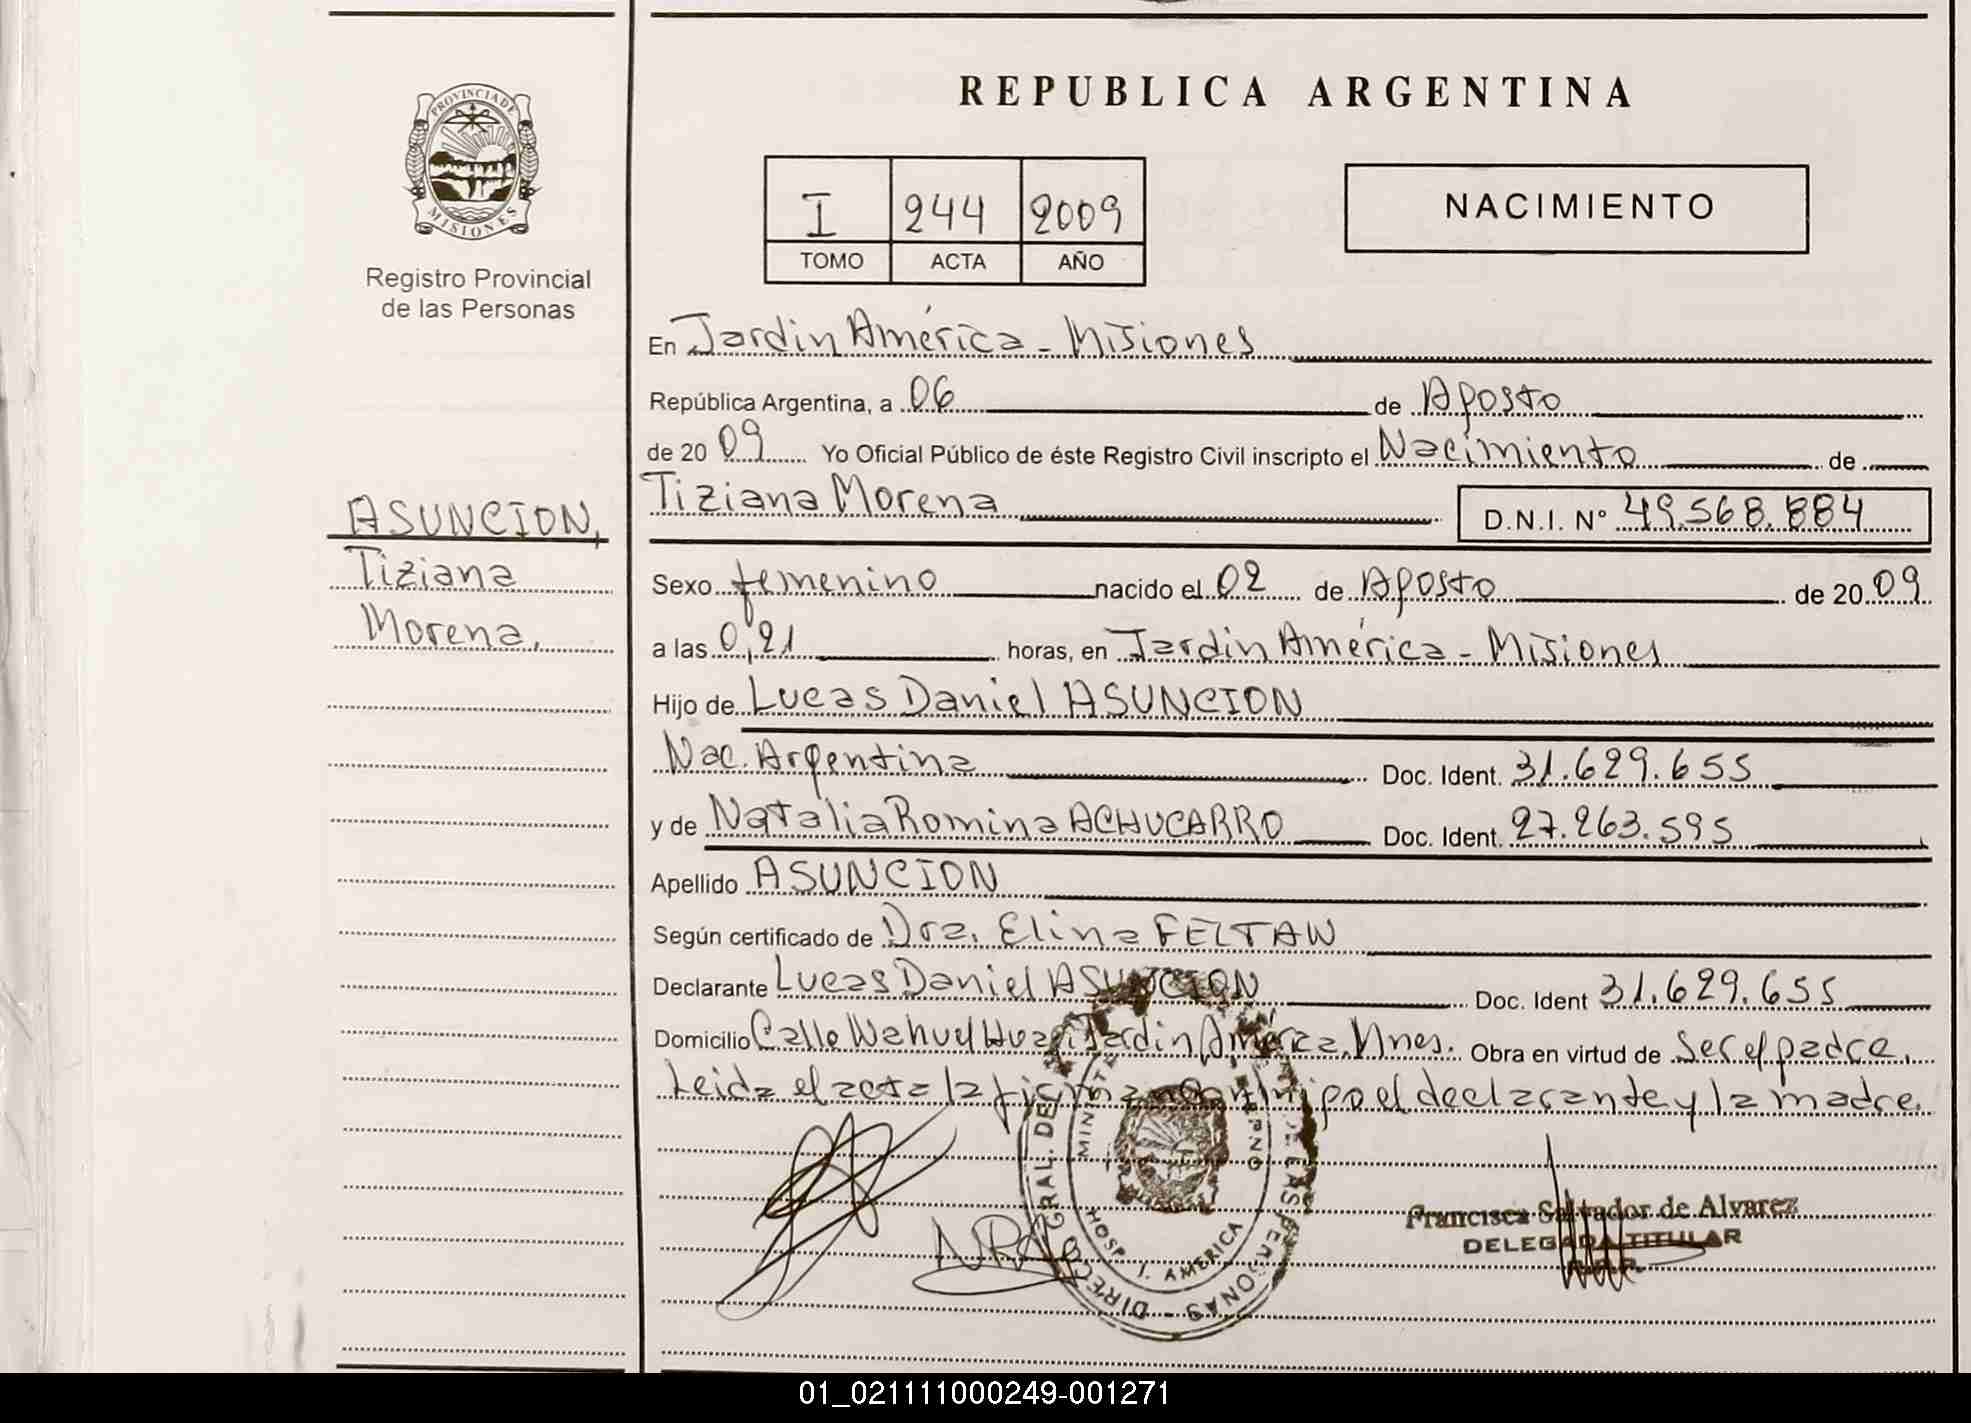 PROVINCIA DE
MISIONES
Registro Provincial
de las Personas
ASUNCION,
Tiziana
Morena.
REPUBLICA ARGENTINA
I 244 2009
TOMO ACTA AÑO
NACIMIENTO
En Jardin América - Misiones
República Argentina, a 06 de Agosto
de 20 09 Yo Oficial Público de éste Registro Civil inscripto el Nacimiento de
Tiziana Morena D.N.I. Nº 49.568.884
Sexo femenino nacido el 02 de Agosto de 20 09
a las 0,21 horas, en Jardin América - Misiones
Hijo de Lucas Daniel ASUNCION
Nac. Argentina Doc. Ident. 31.629.655
y de Natalia Romina ACHUCARRO Doc. Ident. 27.263.595
Apellido ASUNCION
Según certificado de Dra. Elina FELTAN
Declarante Lucas Daniel ASUNCION Doc. Ident 31.629.655
Domicilio Calle Nahuel Huapi Jardin América, Mnes. Obra en virtud de Ser el padre.
Leida el acta la firma conmigo el declarante y la madre.
HOSP. J. AMERICA
Francisca Salvador de Alvarez
DELEGADA TITULAR
01_021111000249-001271